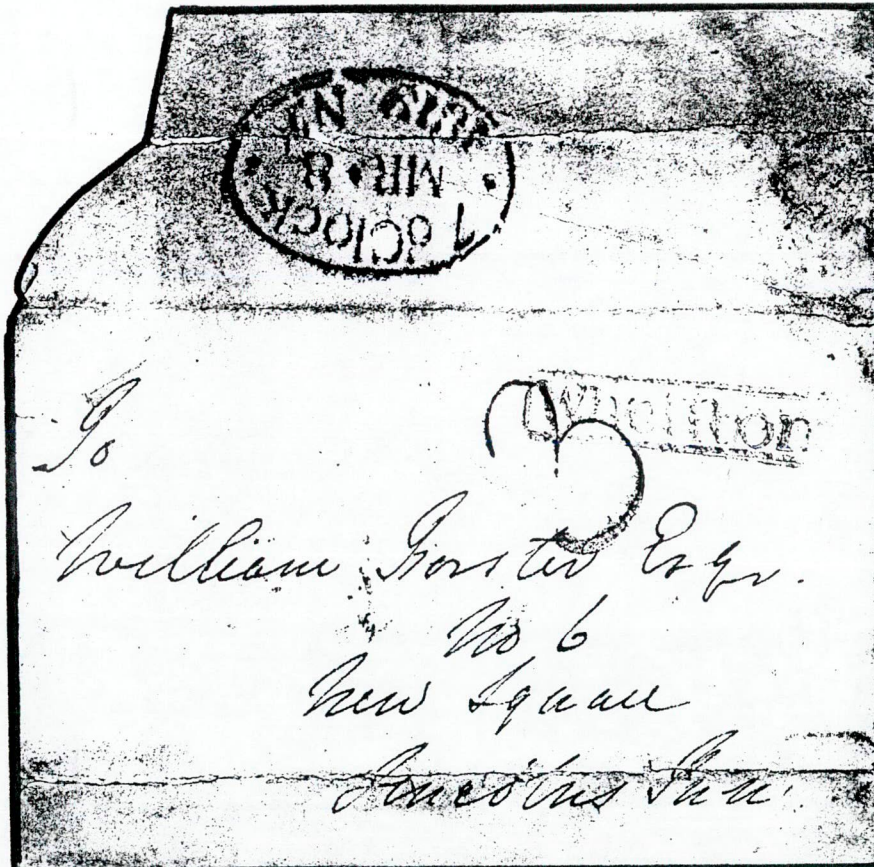 7 o'CLOCK
8 MR
1819 NT
To
William Forster Esqr.
No 6
New Square
Lincolns Inn
3